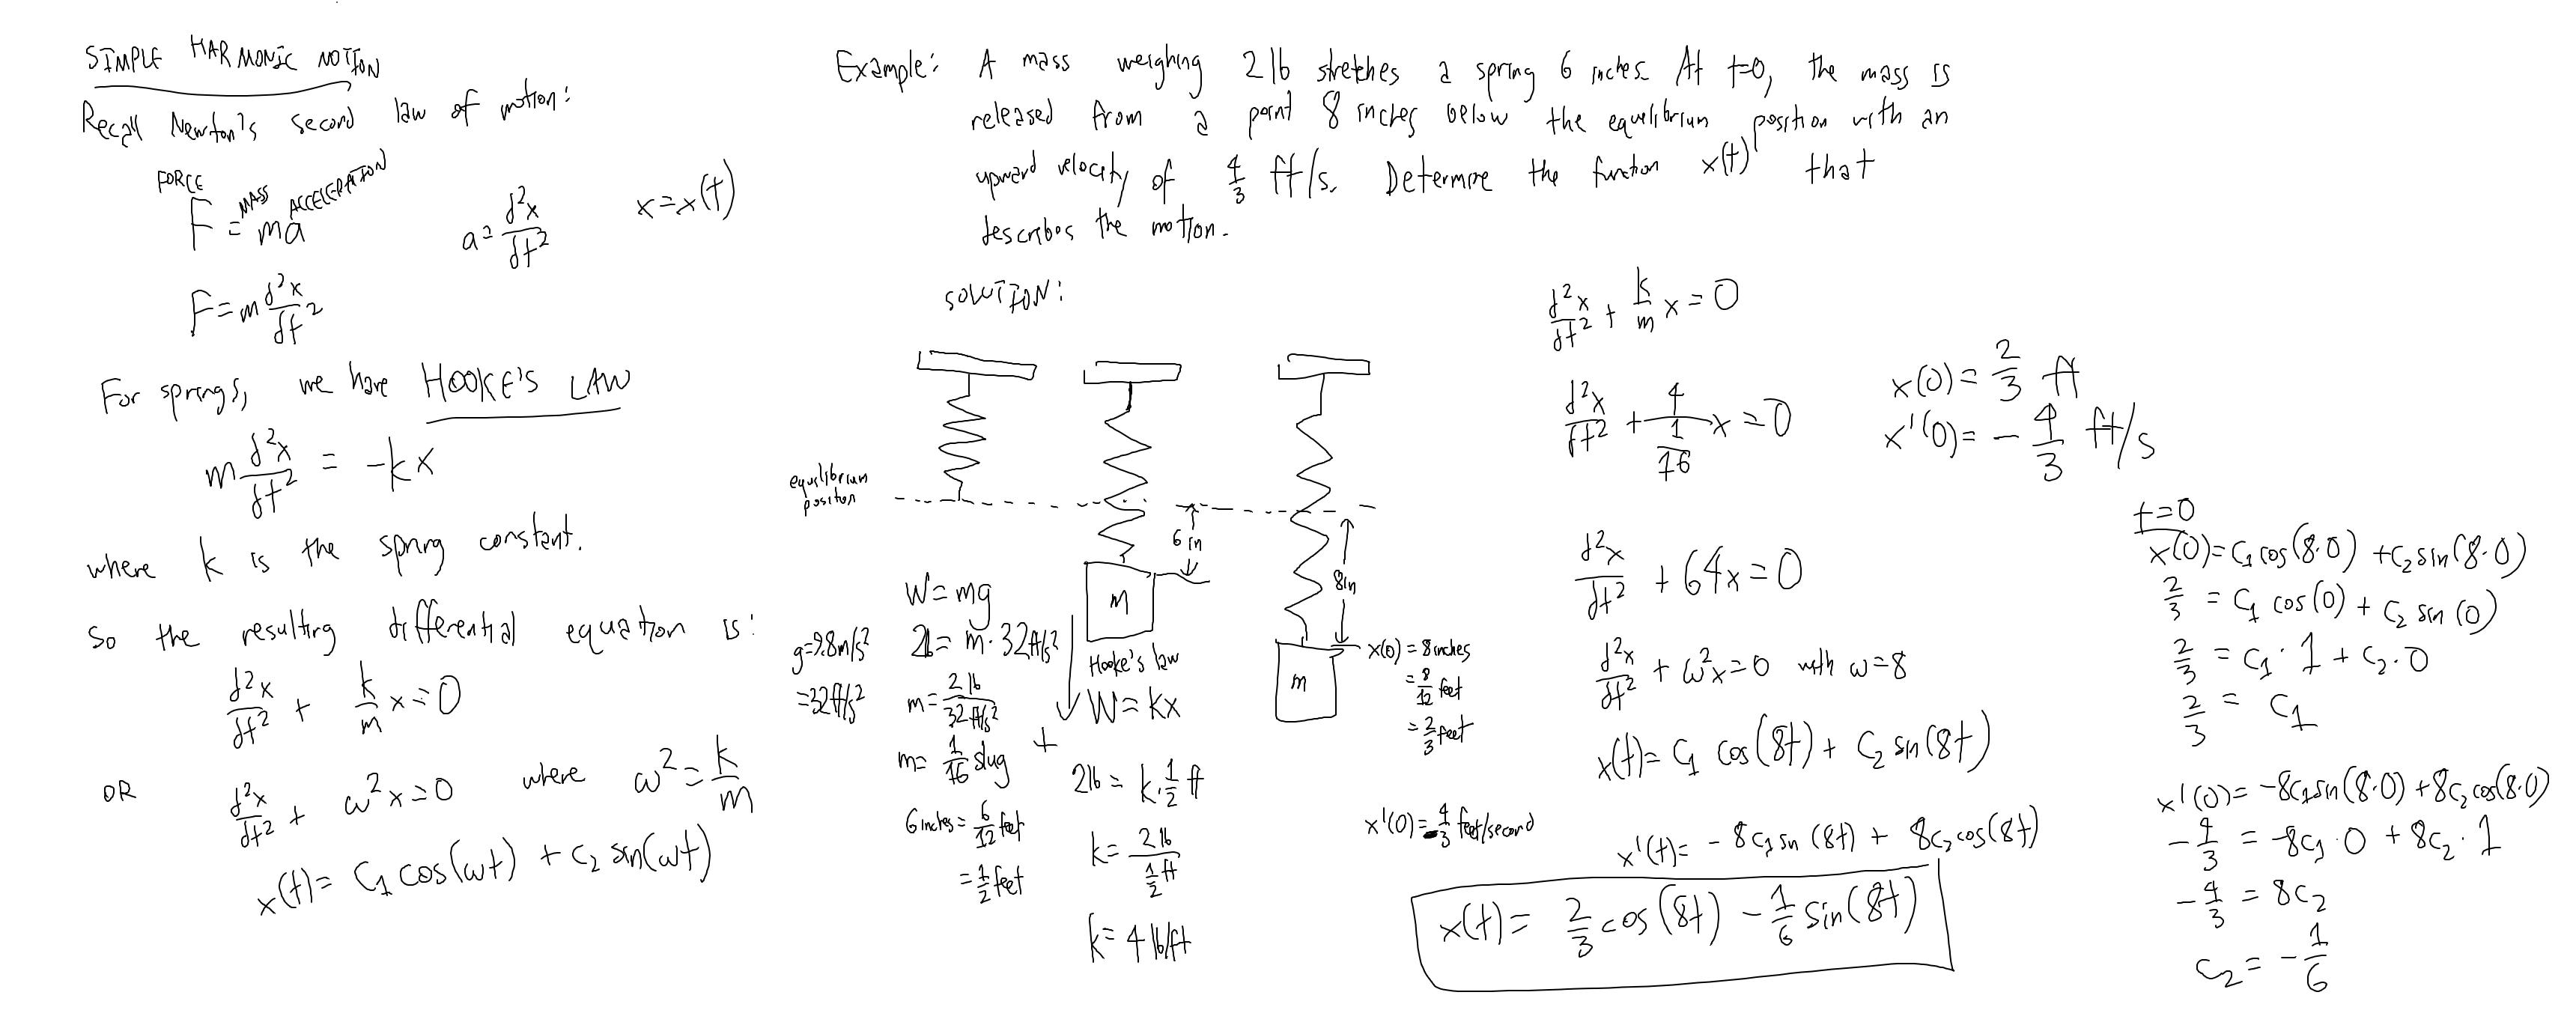 SIMPLE HARMONIC MOTION
Recall Newton's second law of motion:
FORCE MASS ACCELERATION
F = ma
a = d²x/dt²
x = x(t)
F = m d²x/dt²
For springs, we have HOOKE'S LAW
m d²x/dt² = -kx
where k is the spring constant.
So the resulting differential equation is:
d²x/dt² + k/m x = 0
OR d²x/dt² + ω²x = 0 where ω² = k/m
x(t) = C₁ cos(ωt) + C₂ sin(ωt)
Example: A mass weighing 2 lb stretches a spring 6 inches. At t=0, the mass is
released from a point 8 inches below the equilibrium position with an
upward velocity of 4/3 ft/s. Determine the function x(t) that
describes the motion.
SOLUTION:
equilibrium
position
6 in
8 in
m
m
W = mg
g = 9.8 m/s²
= 32 ft/s²
2 lb = m · 32 ft/s²
m = 2 lb / 32 ft/s²
m = 1/16 slug
6 inches = 6/12 feet
= 1/2 feet
Hooke's law
W = kx
+
2 lb = k · 1/2 ft
k = 2 lb / 1/2 ft
k = 4 lb/ft
x(0) = 8 inches
= 8/12 feet
= 2/3 feet
x'(0) = -4/3 feet/second
d²x/dt² + k/m x = 0
d²x/dt² + 4/(1/16) x = 0
x(0) = 2/3 ft
x'(0) = -4/3 ft/s
d²x/dt² + 64x = 0
d²x/dt² + ω²x = 0 with ω = 8
x(t) = C₁ cos(8t) + C₂ sin(8t)
x'(t) = -8C₁ sin(8t) + 8C₂ cos(8t)
x(t) = 2/3 cos(8t) - 1/6 sin(8t)
t=0
x(0) = C₁ cos(8·0) + C₂ sin(8·0)
2/3 = C₁ cos(0) + C₂ sin(0)
2/3 = C₁ · 1 + C₂ · 0
2/3 = C₁
x'(0) = -8C₁ sin(8·0) + 8C₂ cos(8·0)
-4/3 = -8C₁ · 0 + 8C₂ · 1
-4/3 = 8C₂
C₂ = -1/6